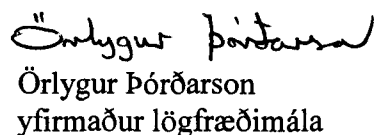 Örlygur Þórðarson
Örlygur Þórðarson
yfirmaður lögfræðimála